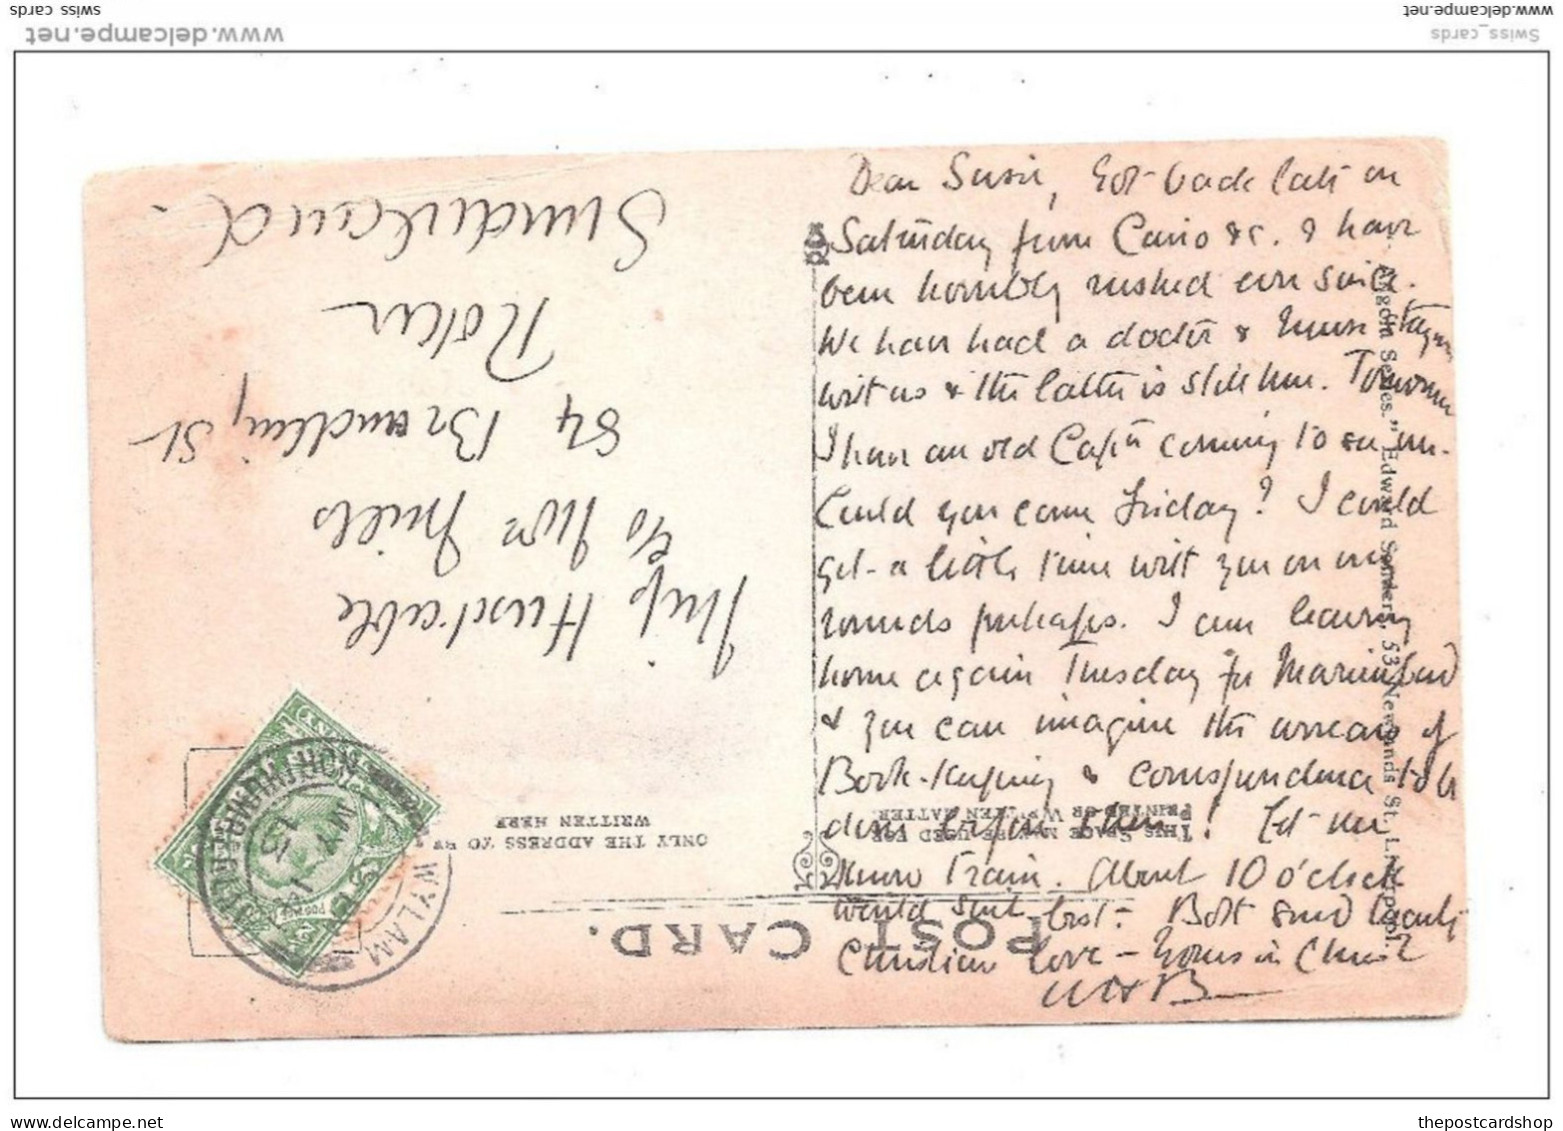 www.delcampe.net
swiss_cards
www.delcampe.net
Swiss_cards
Dear Susie, Got back late on
Saturday from Cairo &c. & have
been horribly rushed ever since.
We have had a doctor & nurse staying
with us & the latter is still here. Tomorrow
I have an old Captn coming to see me.
Could you come Friday? I could
get a little time with you on my
rounds perhaps. I am leaving
home again Tuesday for Marienbad
& you can imagine the arrears of
Book-keeping & correspondence to be
done before then! Let me
know Train. About 10 o'clock
would suit best. Both send
Christian love – Yours in Christ
POST CARD.
THIS SPACE MAY BE USED FOR
PRINTED OR WRITTEN MATTER
ONLY THE ADDRESS TO BE
WRITTEN HERE
"Argold Series." Edward Sanders, 53 Newlands St. Liverpool.
WYLAM
NORTHUMBERLAND
MY
13
Miss Huxtable
c/o Mrs Mills
84 Brandling St
Roker
Sunderland.
thepostcardshop
www.delcampe.net